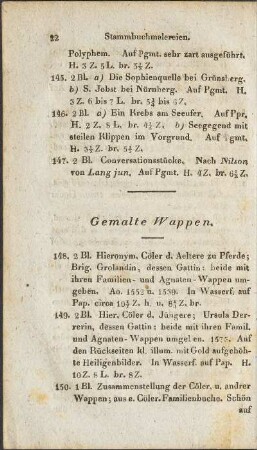 22 Stammbuchmalereien.
Polyphem. Auf Pgmt. sehr zart ausgeführt.
H. 3 Z. 5 L. br. 5½ Z.
145. 2 Bl. a) Die Sophienquelle bei Grünsberg.
b) S. Jobst bei Nürnberg. Auf Pgmt. H.
3 Z. 6 bis 7 L. br. 5¾ bis 6 Z.
146. 2 Bl. a) Ein Krebs am Seeufer. Auf Ppr,
H. 2 Z. 8 L. br. 4½ Z. b) Seegegend mit
steilen Klippen im Vorgrund. Auf Pgmt.
H. 3½ Z. br. 5½ Z.
147. 2 Bl. Conversationsstücke. Nach Nilson
von Lang jun. Auf Pgmt. H. 4 Z. br. 6½ Z.
Gemalte Wappen.
148. 2 Bl. Hieronym. Cöler d. Aeltere zu Pferde;
Brig. Grolandin, dessen Gattin: beide mit
ihren Familien- und Agnaten-Wappen um-
geben. Ao. 1552 u. 1530. In Wasserf. auf
Pap. circa 10½ Z. h. u. 8½ Z. br.
149. 2 Bl. Hier. Cöler d. Jüngere; Ursula Der-
rerin, dessen Gattin: beide mit ihren Famil.
und Agnaten-Wappen umgeben. 1575. Auf
den Rückseiten kl. illum. mit Gold aufgehöh-
te Heiligenbilder. In Wasserf. auf Pap. H.
10 Z. 8 L. br. 8 Z.
150. 1 Bl. Zusammenstellung der Cöler. u. andrer
Wappen; aus e. Cöler. Familienbuche. Schön
auf